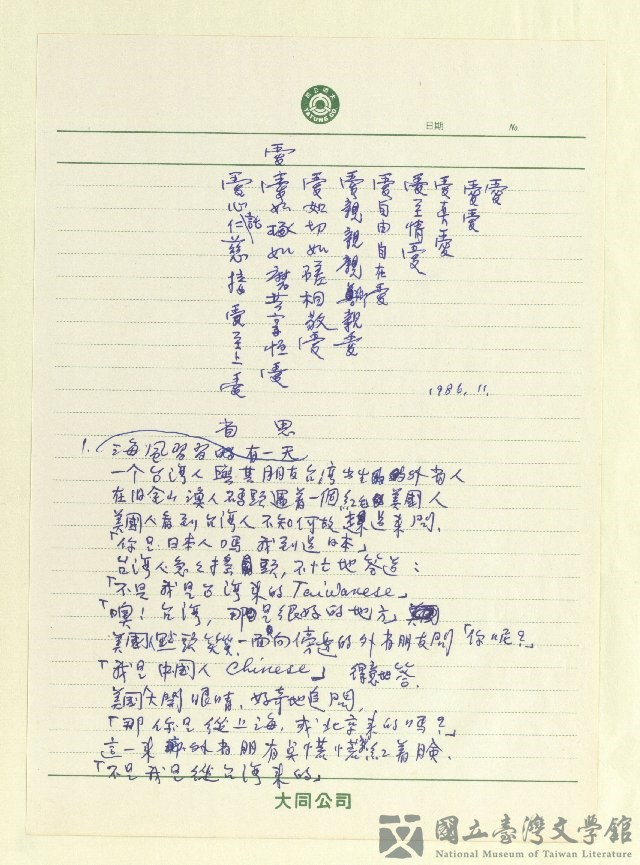 大同公司
TATUNG CO.
日期
No.
愛
愛愛
愛真愛
愛至情愛
愛自由自在愛
愛親親親親愛
愛如切如磋相敬愛
愛如琢如磨共享恒愛
愛心仁慈接愛至上愛
1986.11.
省思
1. 海風習習的有一天
一个台湾人與其朋友台湾出生的外省人
在旧金山漁人碼頭遇着一個紅毛美國人
美國人看到台湾人不知何故趕過來問.
「你是日本人嗎 我到過日本」
台湾人急急搖頭,不忙地答道:
「不是我是台湾來的Taiwanese」
「噢!台湾,那是很好的地方
美國人點頭笑笑一面向傍邊的外省朋友問「你呢?」
「我是中國人 Chinese」 得意地答.
美國人大開眼睛.好奇地追問,
「那你是從上海,或北京來的嗎?」
這一來外省朋友臭慌慌紅着臉.
「不是我是從台湾來的」
大同公司
國立臺灣文學館
National Museum of Taiwan Literature